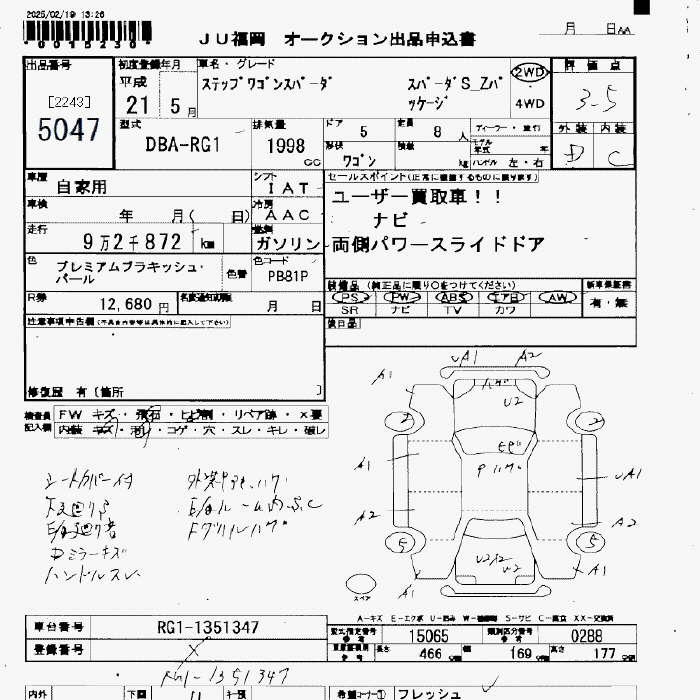 2025/02/19 13:26
*0015230*
ＪＵ福岡　オークション出品申込書
月　日AA
出品番号
[2243]
5047
初度登録年月
平成
21 5月
車名・グレード
ステップワゴンスパーダ
スパーダS_Zパッケージ
2WD
4WD
評価点
3-5
外装 内装
D C
型式
DBA-RG1
排気量
1998
CC
ドア
5
定員
8 人
形状
ワゴン
積載
kg
ディーラー・並行
モデル年式 年
ハンドル 左・右
車歴
自家用
シフト
IAT
車検
年 月( 日)
冷房
AAC
走行
9万2千872 km
燃料
ガソリン
色
プレミアムブラキッシュ・パール
色替
色コード
PB81P
R券
12,680 円
名変通知期限
月 日
セールスポイント(正常に機能するものに限ります)
ユーザー買取車！！
ナビ
両側パワースライドドア
装備品 (純正品に限り○をつけてください)
PS PW ABS エアB AW
SR ナビ TV カワ
新車保証書
有・無
後日品
注意事項申告欄(不具合内容等は具体的に記入して下さい)
修復歴 有〔箇所 〕
検査員記入欄
FW キズ・飛石・ヒビ割・リペア跡・X要
内装 キズ・汚レ・コゲ・穴・スレ・キレ・破レ
シートカバー付
下廻りサビ
Dミラーキズ
ハンドルスレ
A1
A2
A1
U2
A1
A2
UA1
A2
A1
A1
2
2
5
5
スペア
A-キズ E-エクボ U-凹み W-補修跡 S-サビ C-腐立 XX-交換済
車台番号
RG1-1351347
登録番号
X
RG1-1351347
型式指定番号
参考
15065
類別区分番号
参考
0288
長さ 466
幅 169
高さ 177
内外
下回
キー残
希望コーナー① フレッシュ